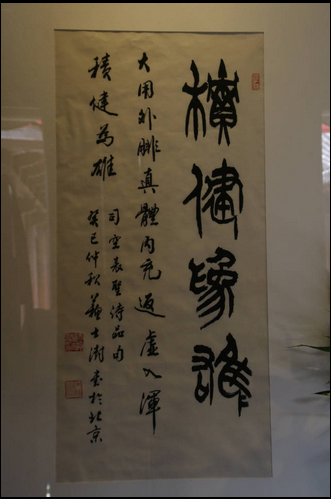 積健為雄
大用外腓真體內充返虛入渾
積健為雄
司空表聖詩品句
癸巳仲秋蘇士澍書於北京